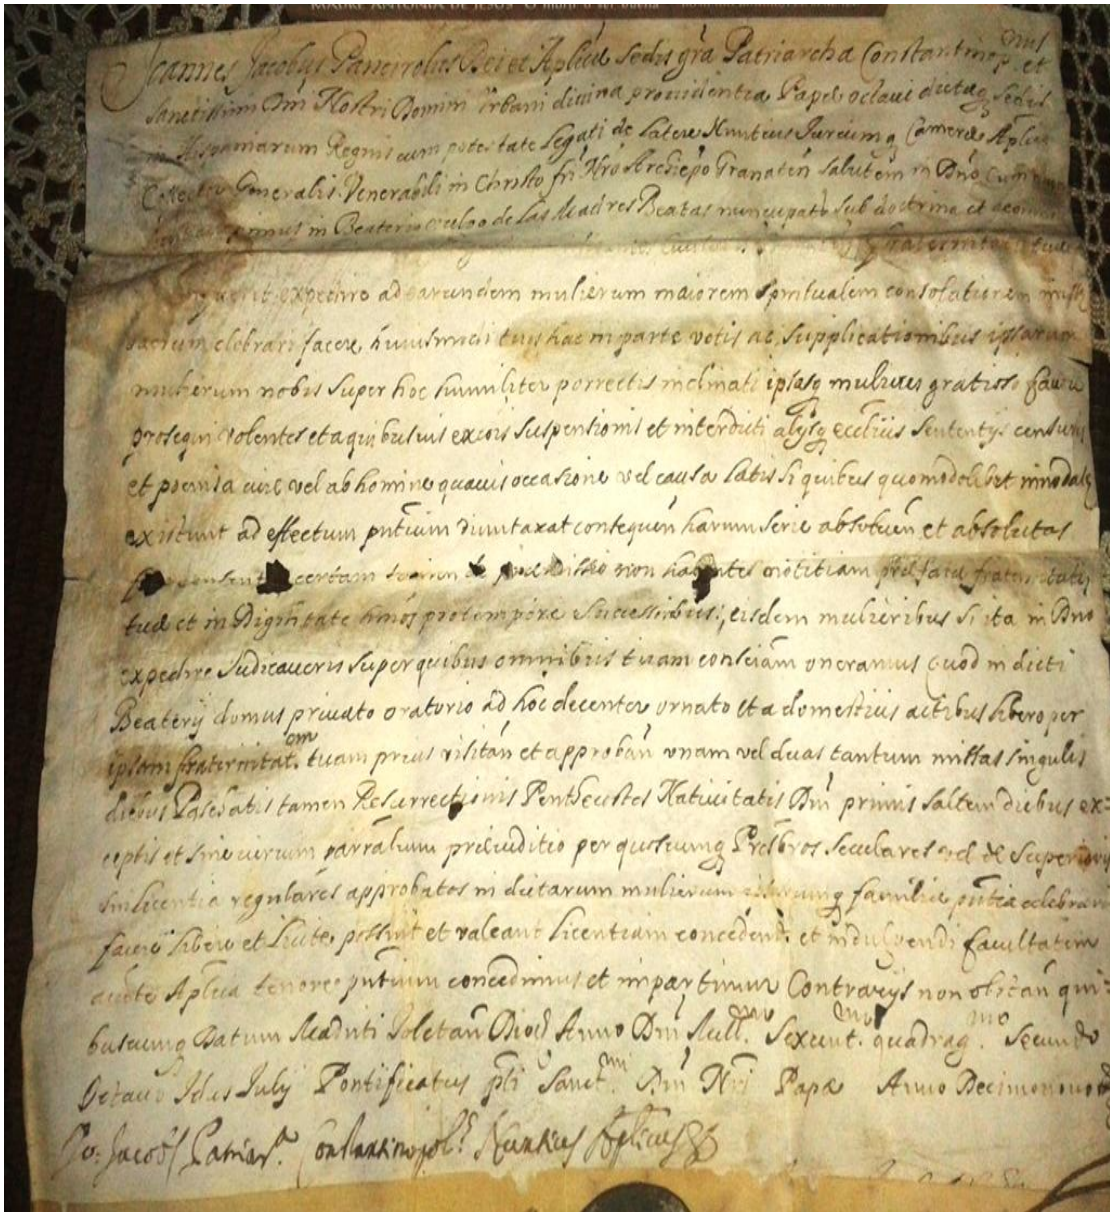 MADRE ANTONIA DE JESUS
Joannes Jacobus Pancirolus Dei et Aplicae Sedis gra Patriarcha Constantinop.nus et
Sanctissimi Dni Nostri Domini Urbani divina providentia Papae octavi dictaeq Sedis
in Hispaniarum Regnis cum potestate Legati de Latere Nuntius Juriumq Camerae Aplicae
Collector Generalis. Venerabili in Christo fri Nro Archiepo Granaten Salutem in Dno Cum
in Beaterio vulgo de las Madres Beatas nuncupato sub doctrina et
fraternitas tua
expedire ad earundem mulierum maiorem spiritualem consolationem
sacrum celebrari facere, huiusmodi tuis hac in parte votis ac supplicationibus ipsarum
mulierum nobis super hoc humiliter porrectis inclinati ipsasq mulieres gratioso favore
prosequi volentes et a quibusvis excois suspensionis et interdicti alijsq ecclicis sententijs censuris
et poenis a iure vel ab homine quavis occasione vel causa latis si quibus quomodolibet innodatae
existunt ad effectum pntium dumtaxat consequen harum serie absolven et absolutas
certam non habentes notitiam praefatae fraternitati
tuae et in Dignitate hmoi pro tempore Successoribus, eisdem mulieribus si ita in Dno
expedire Judicaveris super quibus omnibus tuam consciam oneramus quod in dicti
Beaterij domus privato oratorio ad hoc decenter ornato et a domesticis actibus libero per
ipsam fraternitat.em tuam prius visitan et approban unam vel duas tantum missas singulis
diebus Paschatis tamen Resurrectionis Penthecostes Nativitatis Dni primis saltem diebus ex=
ceptis et sine iurium parralium praeiuditio per quoscumq Presbros seculares vel de Superiorū
suis licentia regulares approbatos in dictarum mulierum familiae pntia celebrari
facere libere et licite possint et valeant licentiam concedend. et indulgendi facultatem
aucte Aplica tenore pntium concedimus et impartimur Contrarijs non obstan qui=
buscumq Datum Madriti Toletan Dioc Anno Dni Mill.mo Sexcent.mo quadrag.mo Secundo
Octavo Idus Julij Pontificatus pti Sanct.mi Dni Nri Papae Anno Decimonono
Jo: Jacobs Patriar.a Constantinopol.s Nuntius Aplicus